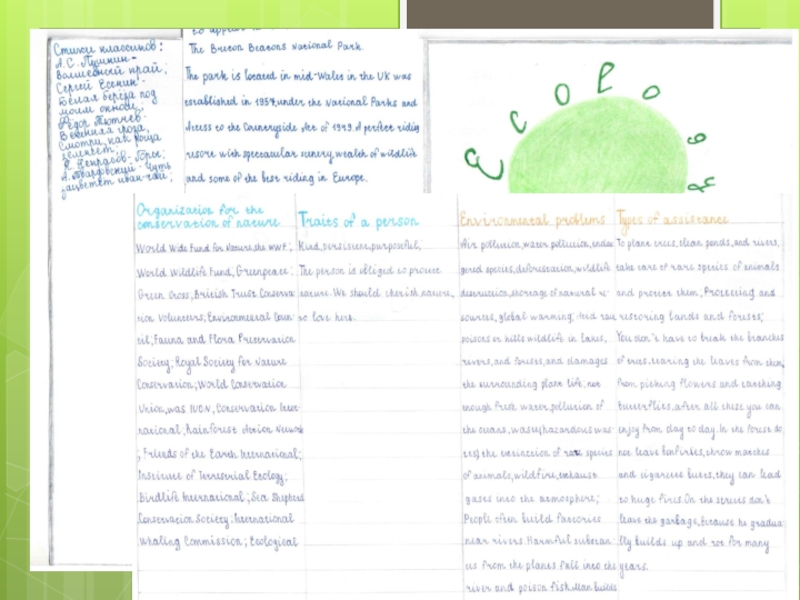 Стихи классиков:
А.С. Пушкин-
Волшебный край;
Сергей Есенин:
Белая берёза под
моим окном;
Фёдор Тютчев:
Весенняя гроза,
Смотри, как роща
зеленеет;
Н. Некрасов-Горы;
А. Твардовский: Чуть
зацветет иван-чай;
to appear
The Brecon Beacons National Park.
The park is located in mid-Wales in the UK was
established in 1957, under the National Parks and
Access to the Countryside Act of 1949. A perfect riding
resore with spectacular scenery, wealth of wildlife
and some of the best riding in Europe.
Ecolog
Organization for the
conservation of nature
World Wide Fund for Nature, the WWF;
World Wildlife Fund, Greenpeace;
Green Cross, British Trust Conserva
tion Volunteers; Environmental Coun-
cil; Fauna and Flora Preservation
Society; Royal Society for Nature
Conservation; World Conservation
Union, was IUCN, Conservation Inter-
national, Rainforest Action Network
; Friends of the Earth International;
Institute of Terrestrial Ecology;
Birdlife International; Sea Shepherd
Conservation Society; International
Whaling Commission; Ecological
Traits of a person
Kind, persistent, purposeful,
The person is obliged to protect
nature. We should cherish nature,
to love here.
Environmental problems
Air pollution, water pollution, endan
gered species, deforestation, wildlife
destruction, shortage of natural re-
sources, global warming. Acid rain
poisons or kills wildlife in lakes,
rivers, and forests, and damages
the surrounding plant life; not
enough fresh water, pollution of
the oceans, hazardous was-
tes; the extinction of rare species
of animals, wildfire, exhaust
gases into the atmosphere;
People often build factories
near rivers. Harmful substan-
ces from the plants fall into the
river and poison fish. Man builds
Types of assistance
To plant trees, clean ponds, and rivers,
take care of rare species of animals
and protect them, Protecting and
restoring lands and forests;
You don't have to break the branches
of trees, tearing the leaves from them,
from picking flowers and catching
butterflies, after all these you can
enjoy from day to day. In the forest do
not leave bonfires, throw matches
and cigarettes butts, they can lead
to huge fires. On the streets don't
leave the garbage, because he gradua
lly builds up and rot for many
years.